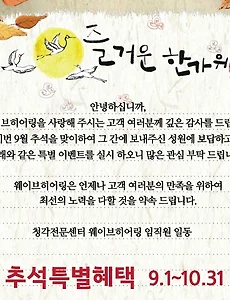 즐거운 한가위
안녕하십니까,
브히어링을 사랑해 주시는 고객 여러분께 깊은 감사를 드립
번 9월 추석을 맞이하여 그 간에 보내주신 성원에 보답하고
래와 같은 특별 이벤트를 실시 하오니 많은 관심 부탁 드립니
웨이브히어링은 언제나 고객 여러분의 만족을 위하여
최선의 노력을 다할 것을 약속 드립니다.
청각전문센터 웨이브히어링 임직원 일동
추석특별혜택 9.1~10.31